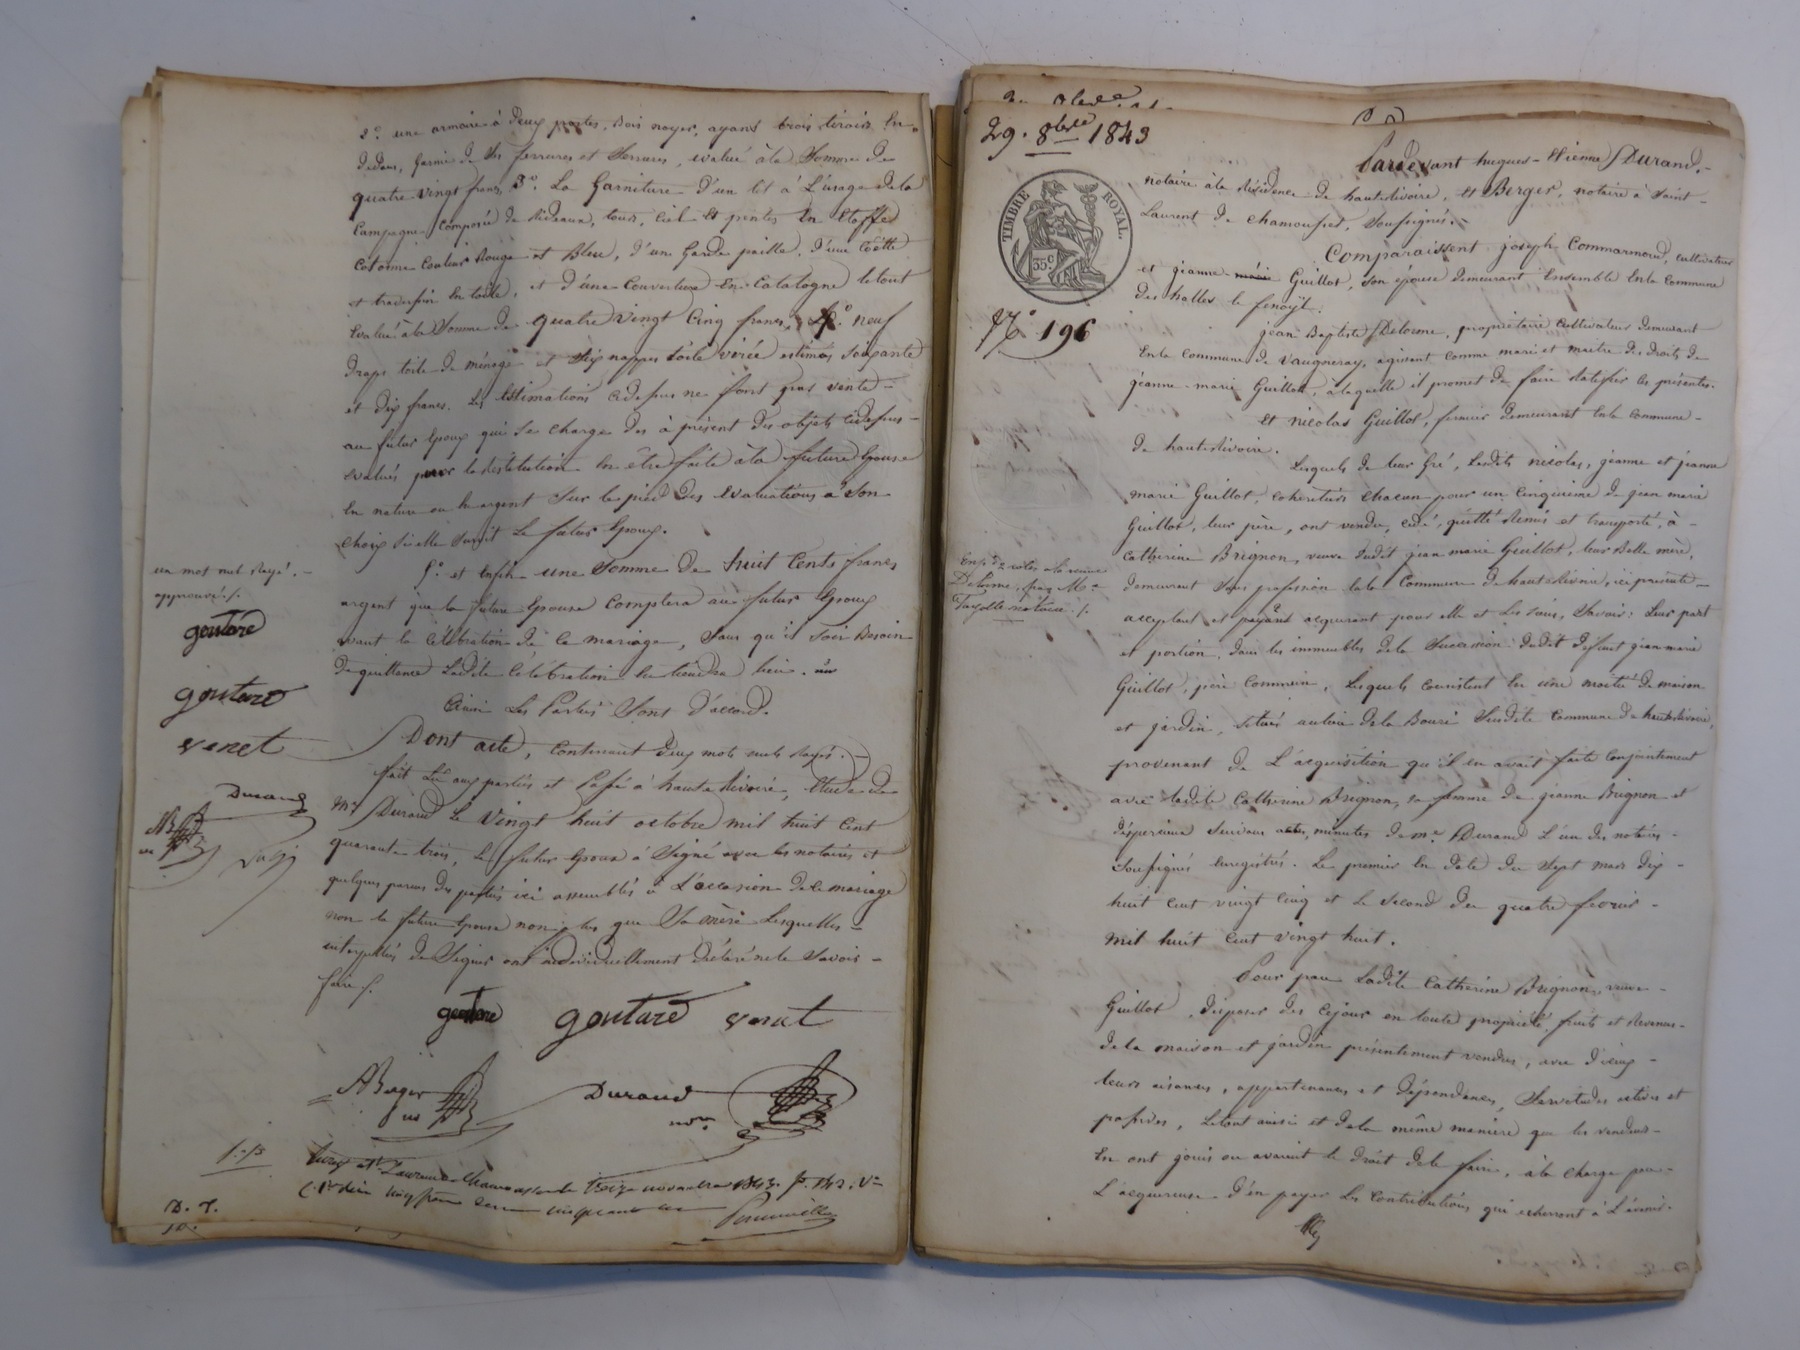 2.° une armoire à deux portes, Bois noyer, ayant trois tiroirs En-
dedans, garnie de ses ferrures et Serrures, evalué à la Somme de
quatre vingt francs, 3.° La Garniture d'un lit à L'usage de la
Campagne Composée de Rideaux, tour, Ciel et pentes En Etoffe
Cotonne Couleur Rouge et Bleu, d'un Garde paille, d'une Coëtte
et traversin En toile, et d'une Couverture En Catalogne le tout
Evalué à la Somme de quatre vingt Cinq francs, 4.° neuf
draps toile de ménage et Six nappes toile virée estimés Soixante
et dix francs. Les Estimations cidessus ne font pas vente -
au futur Epoux qui se charge dès à présent des objets cidessus -
évalués pour la Restitution En être faite à la future Epouse
En nature ou En argent Sur le pied des Evaluations à Son
Choix Si elle Survit Le futur Epoux.
5.° et Enfin une Somme de huit Cents francs
argent que la future Epouse Comptera au futur Epoux
avant la Célébration de Ce mariage, Sans qu'il Soit Besoin
de quittance Ladite Célébration En tiendra lieu.
Ainsi Les Parties Sont d'accord.
Dont acte, Contenant deux mots nuls Rayés. -
fait Lu aux parties et Passé à haute Rivoire, Etude de
Me Durand Le Vingt huit octobre mil huit Cent
quarante trois, Le futur Epoux a Signé avec les notaires et
quelques parens des parties ici assemblés à L'occasion de Ce mariage
non la future Epouse non plus que Sa mère Lesquelles -
interpellés de Signer ont individuellement déclaré ne le Savoir -
faire /.
un mot nul Rayé. -
approuvé /.
goutare
goutare
venet
Durand
goutare goutare venet
ABerger
Durand
nore
Enregt à St Laurent de Chamousset le treize novembre 1843. f.° 142. Vo
D. T.
29. 8bre 1843
TIMBRE ROYAL.
35c
No 196
Pardevant hugues-Etienne Durand. -
notaire à la Résidence de haute Rivoire, et Berger, notaire à Saint -
Laurent de Chamousset, Soussignés. -
Comparaissent joseph Commarmond, cultivateur
et jeanne Guillot, Son épouse demeurant Ensemble En la Commune
des halles le fenoÿl.
jean Baptiste Delorme, propriétaire Cultivateur demeurant
En la Commune de Vaugneray, agissant Comme mari et maitre des droits de
jeanne-marie Guillot, à laquelle il promet de faire Ratifier les présentes.
Et nicolas Guillot, fermier demeurant En la Commune -
de haute Rivoire.
Lesquels de leur Gré, Lesdits nicolas, jeanne et jeanne
marie Guillot, Cohéritiers Chacun pour un Cinquième de jean marie
Guillot, leur père, ont vendu, cédé, quitté Remis et transporté, à -
Catherine Brignon, veuve dudit jean marie Guillot, leur Belle mère,
demeurant Sans profession En la Commune de haute Rivoire, ici présente -
acceptant et acquerant pour elle et Les Siens, Savoir: Leur part
et portion dans les immeubles de la Succession dudit défunt jean marie
Guillot, père Commun, Lesquels Consistent En une moitié de maison
et jardin, Situés au lieu de la Bourie Susdite Commune de haute Rivoire,
provenant de L'acquisition qu'il en avait faite Conjointement
avec Ladite Catherine Brignon, sa femme de jeanne Brignon et
Suivans actes, minutes de me Durand L'un des notaires -
Soussignés Enregistrés. Le premier En date du Sept mars dix -
huit Cent vingt Cinq et Le Second du quatre fevrier -
mil huit Cent vingt huit.
Pour par Ladite Catherine Brignon, veuve -
Guillot, disposer dès Cejour en toute propriété, fruits et Revenus -
de la maison et jardin présentement vendus, avec d'iceux -
leurs aisances, appartenances et dépendances, Servitudes actives et
passives, Le tout ainsi et de la même manière que les vendeurs -
En ont joui ou avaient le droit de le faire, à la charge par -
L'acquéreuse d'en payer Les Contributions qui echerront à L'avenir.
Delorme, par Me
notaire /.